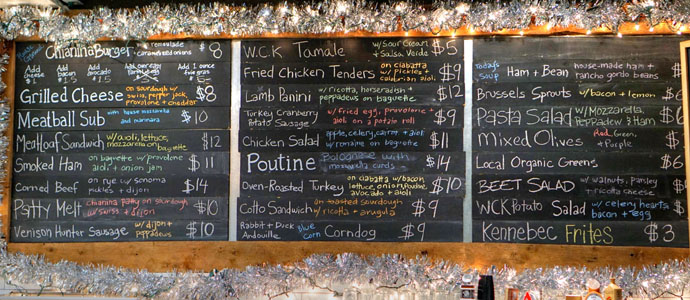 Chianina Burger w/ remoulade $8
caramelized onions
Add cheese $1 Add bacon $2 Add avocado Add Add 1 ounce foie gras
Grilled Cheese on sourdough w/ swiss, pepper jack, provolone + cheddar $8
Meatball Sub with house mozzarella and marinara $10
Meatloaf Sandwich w/ aioli, lettuce, mozzarella on baguette $12
Smoked Ham on baguette w/ provolone aioli + onion jam $11
Corned Beef on rye w/ sonoma pickles + dijon $14
Patty Melt Chianina patty on sourdough w/ swiss + dijon $10
Venison Hunter Sausage w/ dijon + peppadews $10
W.C.K Tamale w/ Sour Cream + Salsa Verde $5
Fried Chicken Tenders on ciabatta w/ pickles + calabrian aioli $9
Lamb Panini w/ ricotta, horseradish + peppadews on baguette $12
Turkey Cranberry Potato Sausage w/ fried egg, provolone + aioli on a potato roll $9
Chicken Salad apple, celery, carrot + aioli w/ romaine on baguette $11
Poutine Bolognase with mozzarella curds $14
Oven-Roasted Turkey on ciabatta w/ bacon lettuce, onion, provolone, avocado + aioli $10
Cotto Sandwich on toasted sourdough w/ ricotta + arugula $9
Rabbit + Duck Andouille Blue Corn Corndog $9
Today's Soup Ham + Bean house-made ham + rancho gordo beans
Brussels Sprouts w/ bacon + lemon $6
Pasta Salad w/ Mozzarella, Peppadew + Ham $6
Mixed Olives Red, Green, + Purple $4
Local Organic Greens $6
BEET SALAD w/ walnuts, parsley + ricotta cheese $6
WCK Potato Salad w/ celery hearts, bacon + egg $6
Kennebec Frites $3